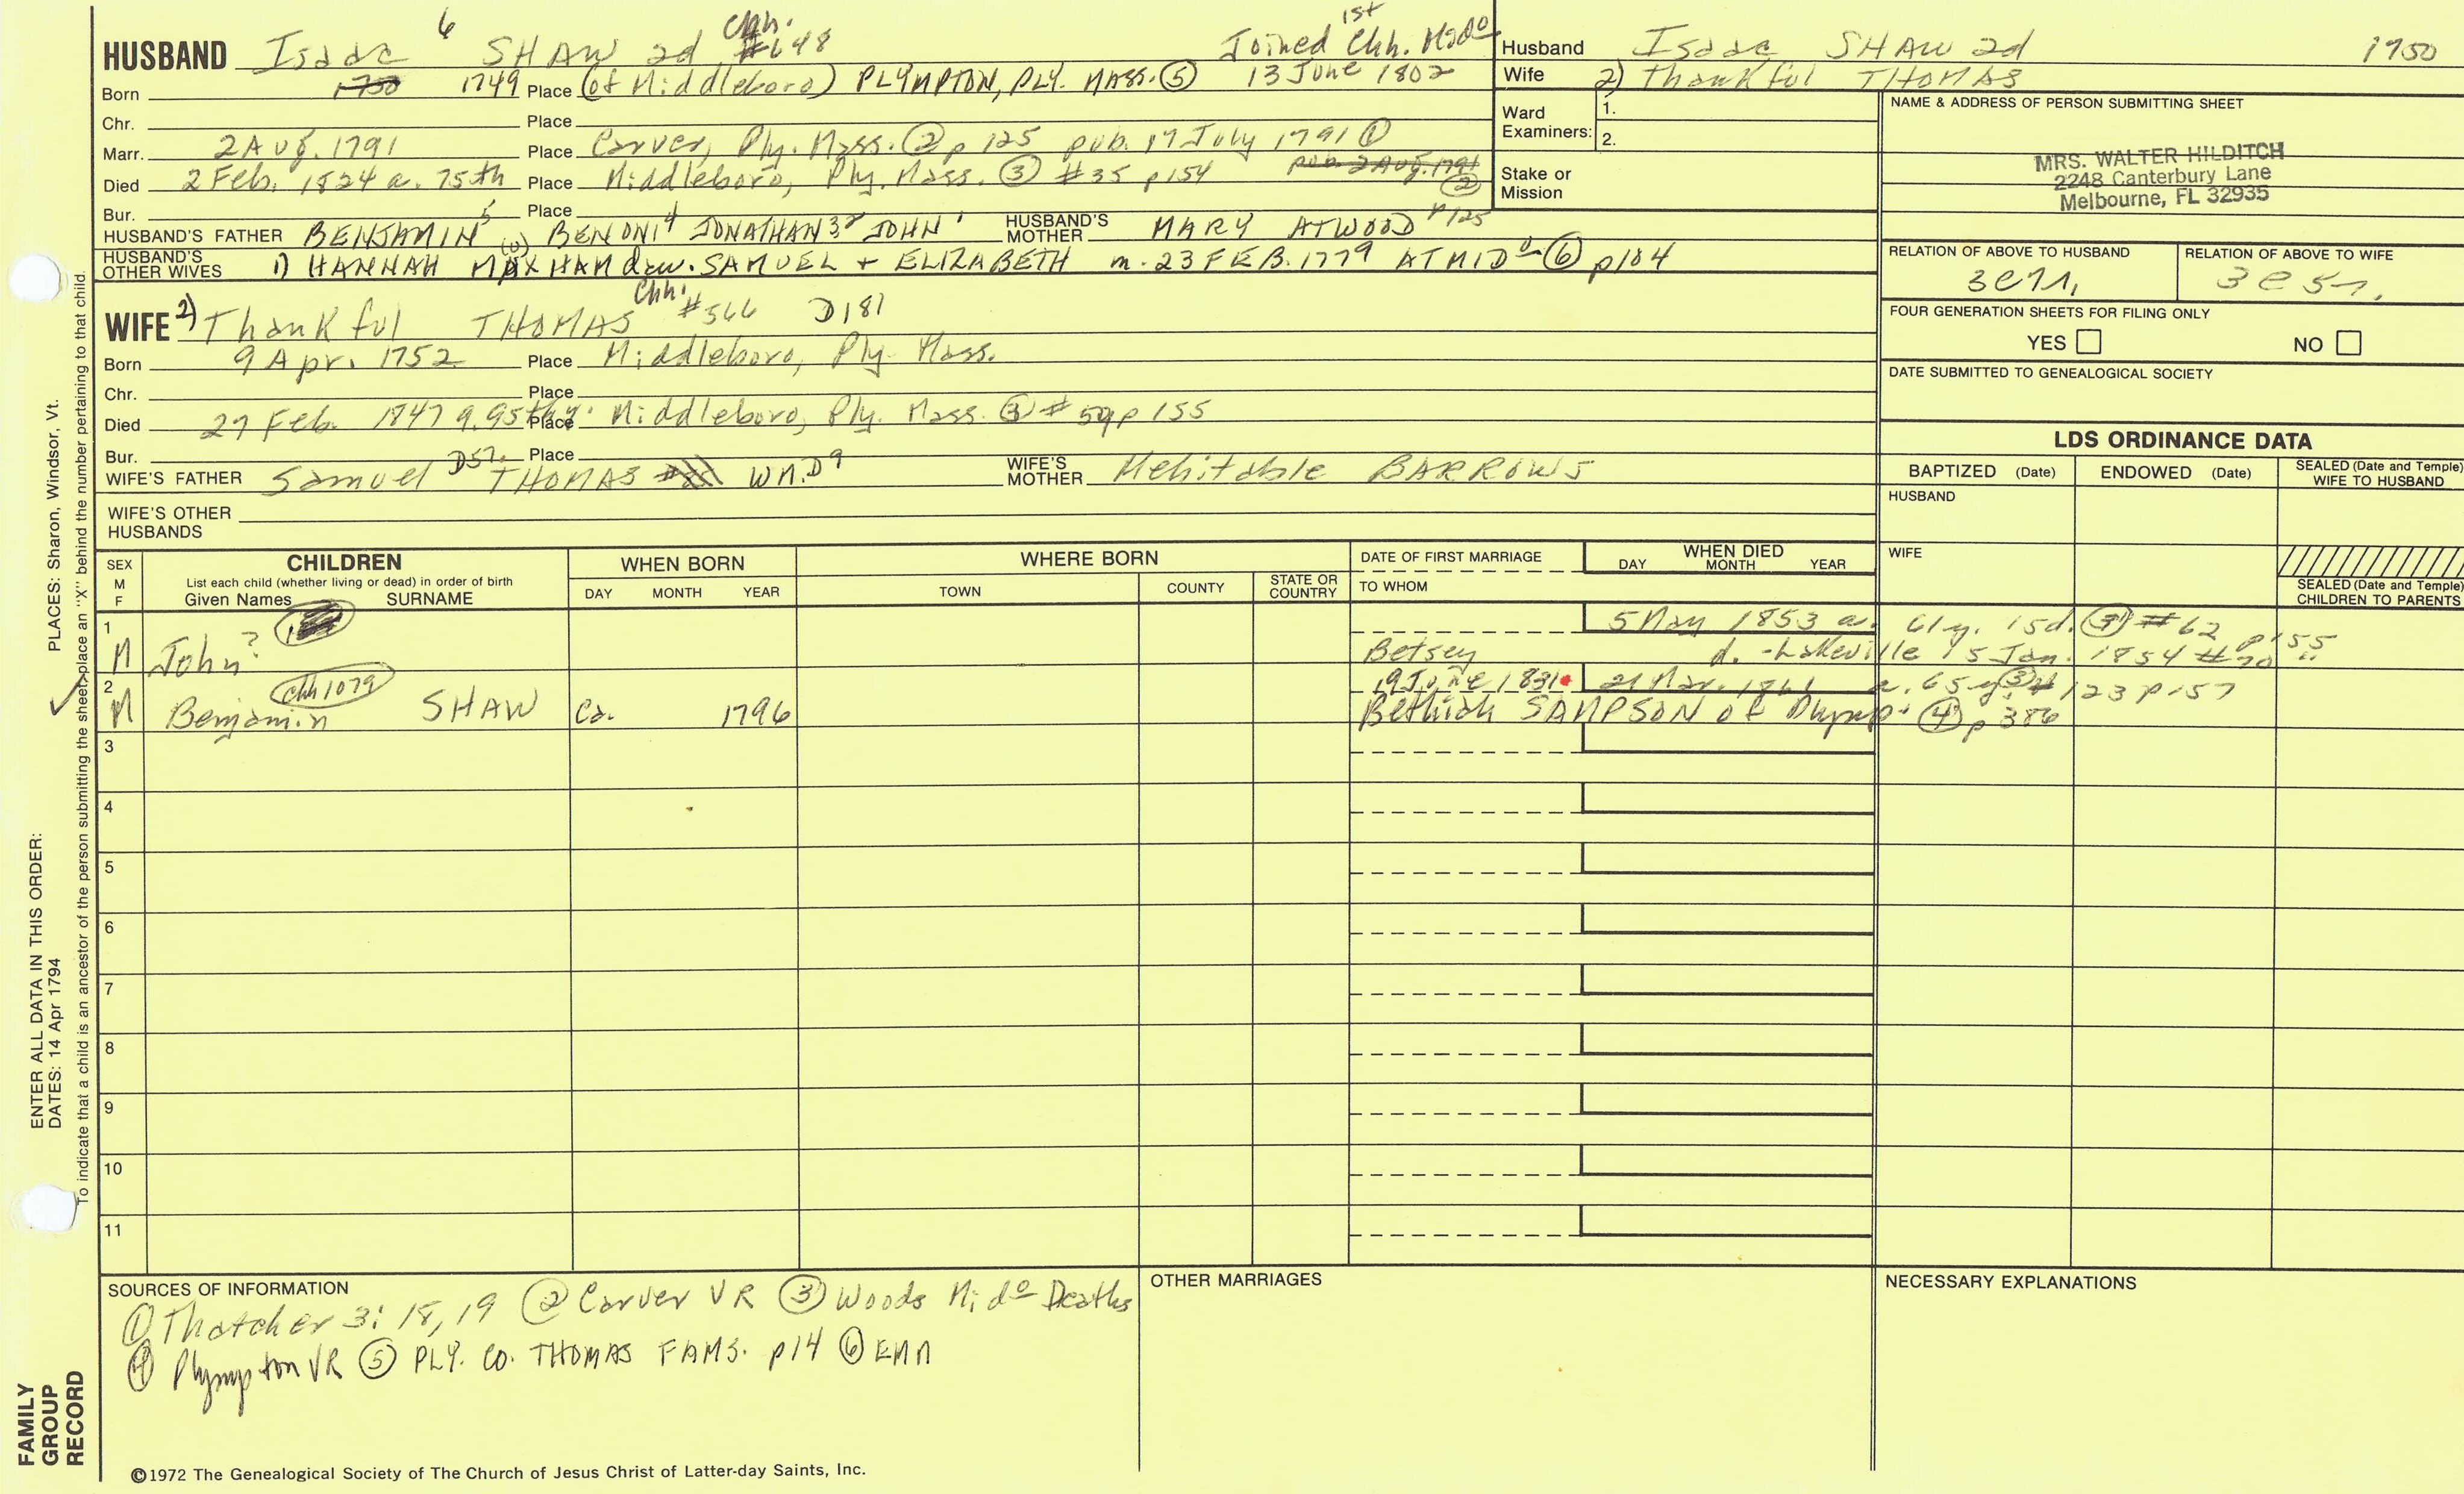 HUSBAND Isaac 6 SHAW 2d Chh. #648 Joined 1st Chh. Mido
Born 1750 1749 Place (of Middleboro) PLYMPTON, PLY. MASS. ⑤ 13 June 1802
Chr. Place
Marr. 2 Aug. 1791 Place Carver, Ply. Mass. ② p 125 pub. 17 July 1791 ①
pub. 2 Aug. 1791 ② p125
Died 2 Feb. 1824 a. 75th Place Middleboro, Ply. Mass. ③ #35 p154
Bur. Place
HUSBAND'S FATHER BENJAMIN 5 BENONI 4 JONATHAN 3 2 JOHN 1 HUSBAND'S MOTHER MARY ATWOOD
HUSBAND'S OTHER WIVES 1) HANNAH MAXHAM daw. SAMUEL + ELIZABETH m. 23 FEB. 1779 AT MIDo ⑥ p104
WIFE 2) Thankful THOMAS Chh. #566 D181
Born 9 Apr. 1752 Place Middleboro, Ply. Mass.
Chr. Place
Died 27 Feb. 1847 a. 95th y. Place Middleboro, Ply. Mass. ③ # 59 p 155
Bur. Place
WIFE'S FATHER Samuel D57. THOMAS Wm. D9 WIFE'S MOTHER Mehitable BARROWS
WIFE'S OTHER HUSBANDS
Husband Isaac SHAW 2d 1750
Wife 2) Thankful THOMAS
Ward Examiners: 1.
2.
Stake or Mission
NAME & ADDRESS OF PERSON SUBMITTING SHEET
MRS. WALTER HILDITCH
2248 Canterbury Lane
Melbourne, FL 32935
RELATION OF ABOVE TO HUSBAND RELATION OF ABOVE TO WIFE
FOUR GENERATION SHEETS FOR FILING ONLY
YES NO
DATE SUBMITTED TO GENEALOGICAL SOCIETY
LDS ORDINANCE DATA
BAPTIZED (Date) ENDOWED (Date) SEALED (Date and Temple) WIFE TO HUSBAND
HUSBAND
WIFE
SEALED (Date and Temple) CHILDREN TO PARENTS
SEX M F CHILDREN WHEN BORN WHERE BORN DATE OF FIRST MARRIAGE WHEN DIED
List each child (whether living or dead) in order of birth
Given Names SURNAME DAY MONTH YEAR TOWN COUNTY STATE OR COUNTRY TO WHOM DAY MONTH YEAR
1 5 May 1853 a. 61y. 15d. ③ #62 p155
M John? Betsey d. - Lakeville 15 Jan. 1854 #70 "
2 Chh 1079 19 June 1831 21 Mar. 1861 a. 65 y. ③ # 123 p157
M Benjamin SHAW Ca. 1796 Bethiah SAMPSON of Plymp. ④ p 386
3
4
5
6
7
8
9
10
11
SOURCES OF INFORMATION
① Thatcher 3: 18, 19 ② Carver VR ③ Woods Mido Deaths
④ Plympton VR ⑤ PLY. CO. THOMAS FAMS. p14 ⑥ EMM
OTHER MARRIAGES
NECESSARY EXPLANATIONS
©1972 The Genealogical Society of The Church of Jesus Christ of Latter-day Saints, Inc.
FAMILY GROUP RECORD
ENTER ALL DATA IN THIS ORDER:
DATES: 14 Apr 1794 PLACES: Sharon, Windsor, Vt.
To indicate that a child is an ancestor of the person submitting the sheet, place an "X" behind the number pertaining to that child.